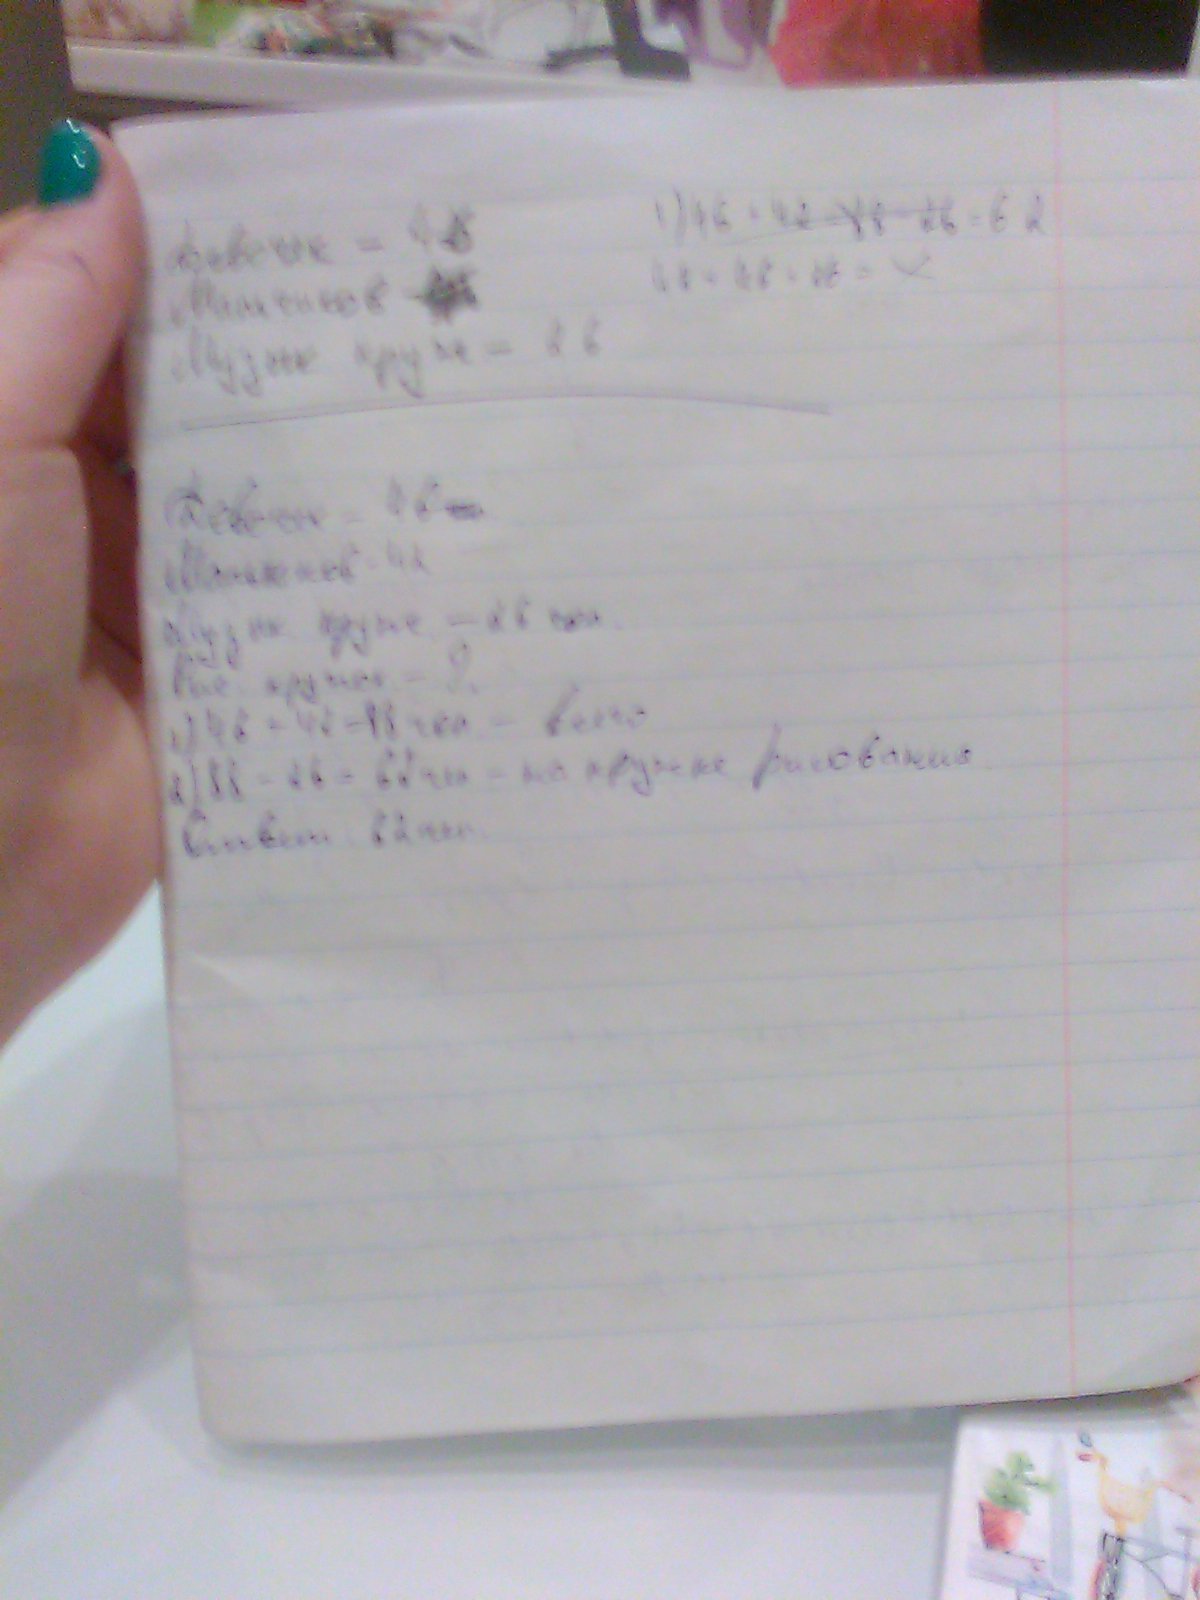 Девочек = 46
Мальчиков
Музык круж = 26
1) 46 + 42 = 88 - 26 = 62
Девочек = 46
Мальчиков - 42
Музык. круже. - 26 чел.
Рис. кружок - ?.
1) 46 + 42 = 88 чел - всего
2) 88 - 26 = 62 чел - на кружке рисования
Ответ: 62 чел.